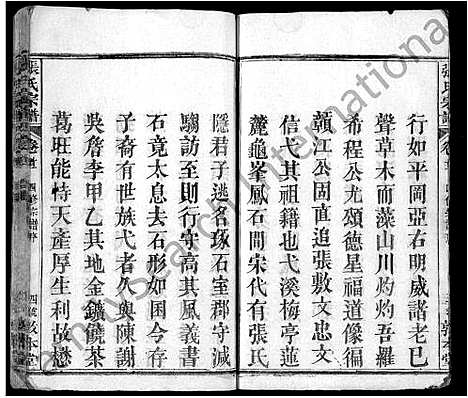 行如平岡亞右明威譜老已
聲草木而藻山川灼灼吾羅
希程公允頌德星福道像徊
贛江公固直追張敷文忠文
信弋其古弋溪梅亭
麓龜峯鳳石間宋代有張氏
隱君子逃名琢石室郡守減
騶訪至則行守高其風義書
石竟太息去石形如困今存
子裔有世族弋者久與陳謝
吳詹李甲乙其地金鑛饒茶
葛班能恃天產厚生利故懋
張氏宗譜
卷首
四修宗譜序
敘本堂
FamilySearch International